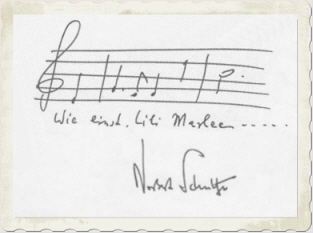 Wie einst. Lili Marleen.....
Norbert Schultze